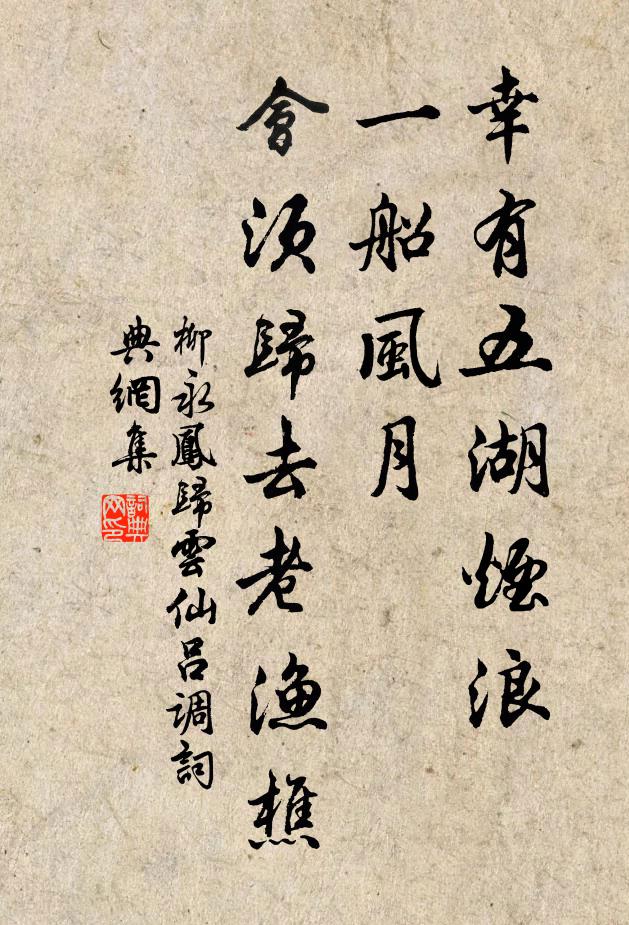 幸有五湖煙浪
一船風月
會須歸去老漁樵
柳永鳳歸雲仙呂調詞
典網集
詞典网印